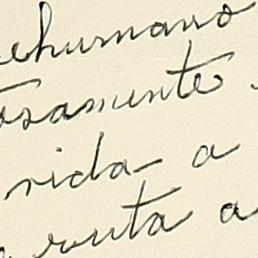 ehumano
osamente.
vida a
vuta a